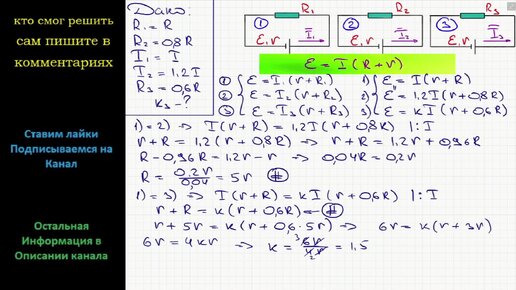 кто смог решить
сам пишите в
комментариях
Ставим лайки
Подписываемся на
Канал
Остальная
Информация в
Описании канала
Дано:
R₁ = R
R₂ = 0,8R
I₁ = I
I₂ = 1,2I
R₃ = 0,6R
к₃ - ?
① R₁ ε, r I₁
② R₂ ε, r I₂
③ R₃ ε, r I₃
ε = I(R + r)
① { ε = I₁(r + R₁) 1) { ε = I(r + R)
② { ε = I₂(r + R₂) 2) { ε = 1,2I(r + 0,8R)
③ { ε = I₃(r + R₃) 3) { ε = кI(r + 0,6R)
1) = 2) ⇒ I(r + R) = 1,2I(r + 0,8R) | : I
r + R = 1,2(r + 0,8R) ⇒ r + R = 1,2r + 0,96R
R - 0,96R = 1,2r - r ⇒ 0,04R = 0,2r
R = 0,2r/0,04 = 5r #
1) = 3) ⇒ I(r + R) = кI(r + 0,6R) | : I
r + R = к(r + 0,6R) ← #
r + 5r = к(r + 0,6·5r) ⇒ 6r = к(r + 3r)
6r = 4кr ⇒ к = ³6r/4r₂ = 1,5